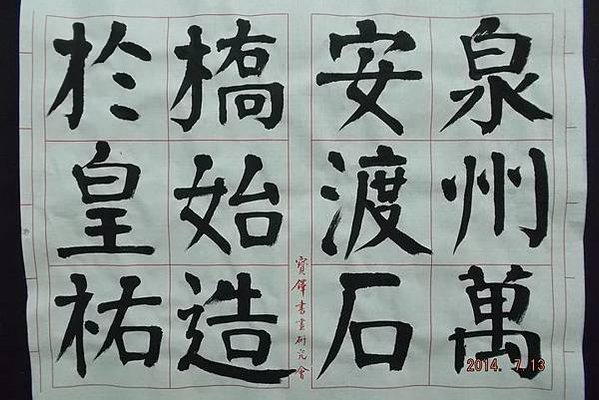 泉州萬
安渡石
橋始造
於皇祐
寶鐸書畫研究會
2014. 7.13